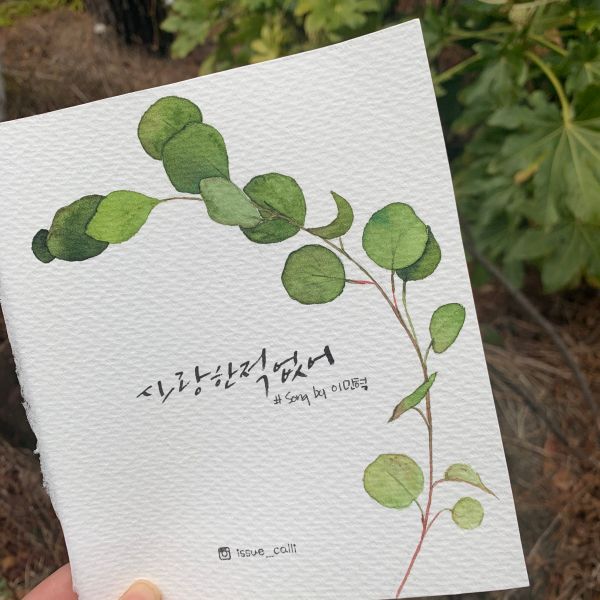 사랑한적 없어
# song by 이민혁
issue_calli